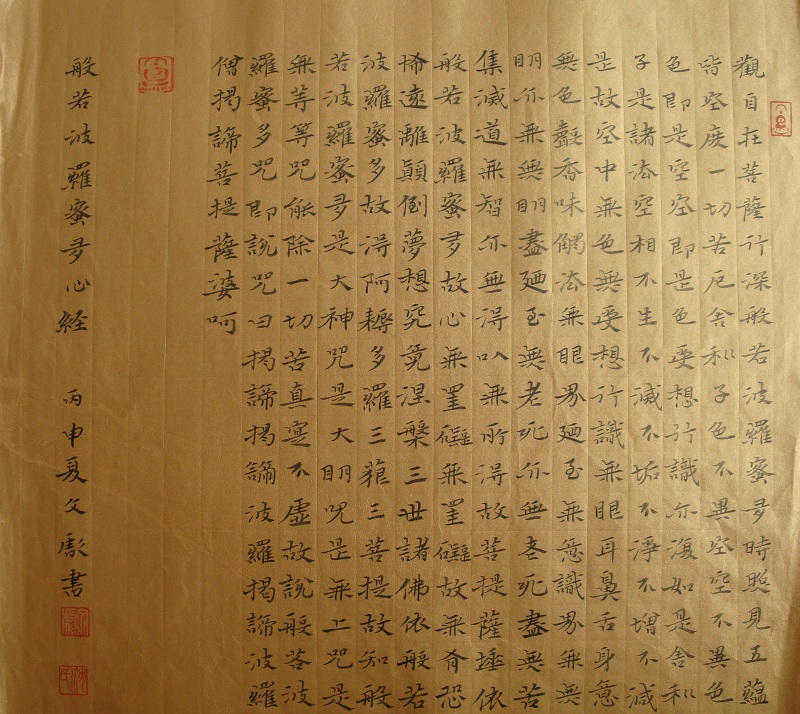 觀自在菩薩行深般若波羅蜜多時照見五蘊
皆空度一切苦厄舍利子色不異空空不異色
色即是空空即是色受想行識亦復如是舍利
子是諸法空相不生不滅不垢不淨不增不減
是故空中無色無受想行識無眼耳鼻舌身意
無色聲香味觸法無眼界廼至無意識界無無
明亦無無明盡廼至無老死亦無老死盡無苦
集滅道無智亦無得以無所得故菩提薩埵依
般若波羅蜜多故心無罣礙無罣礙故無有恐
怖遠離顛倒夢想究竟涅槃三世諸佛依般若
波羅蜜多故得阿耨多羅三藐三菩提故知般
若波羅蜜多是大神咒是大明咒是無上咒是
無等等咒能除一切苦真實不虛故說般若波
羅蜜多咒即說咒曰揭諦揭諦波羅揭諦波羅
僧揭諦菩提薩婆呵
般若波羅蜜多心経 丙申夏文書